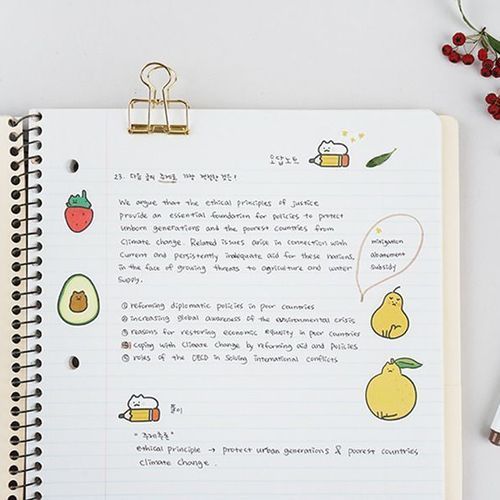 오답노트
23. 다음 글의 주제로 가장 적절한 것은?
We argue that the ethical principles of justice
provide an essential foundation for policies to protect
unborn generations and the poorest countries from
climate change. Related issues arise in connection with
current and persistently inadequate aid for these nations,
in the face of growing threats to agriculture and water
supply.
mitigation
abatement
subsidy
① reforming diplomatic policies in poor countries
② increasing global awareness of the environmental crisis
③ reasons for restoring economic equality in poor countries
④ coping with climate change by reforming aid and policies
⑤ roles of the OECD in solving international conflicts
풀이
"주제추론"
ethical principle → protect urban generations & poorest countries
climate change.